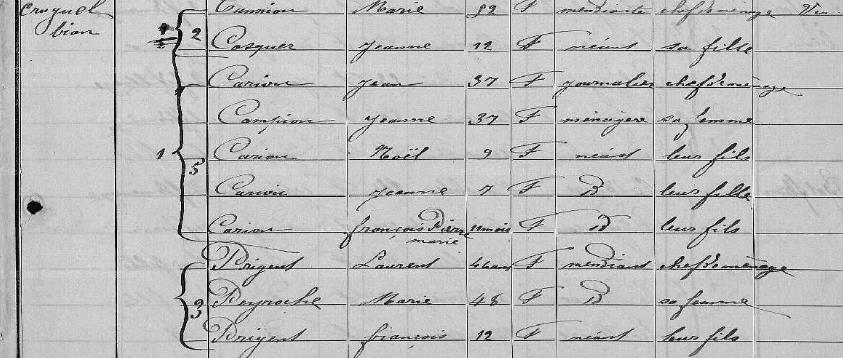 Croguel Camion Marie 52 F mendiante chef de ménage
bian 2 Cosquer Jeanne 12 F néant sa fille
Cariou Jean 37 F journalier chef de ménage
Campion Jeanne 37 F ménagère sa femme
1 Cariou Noël 9 F néant leur fils
5 Cariou Jeanne 7 F D leur fille
Cariou françois Pierre 11 mois F D leur fils
marie
Prigent Laurent 46 ans F mendiant chef de ménage
3 Peyroche Marie 48 F D sa femme
Prigent françois 12 F néant leur fils